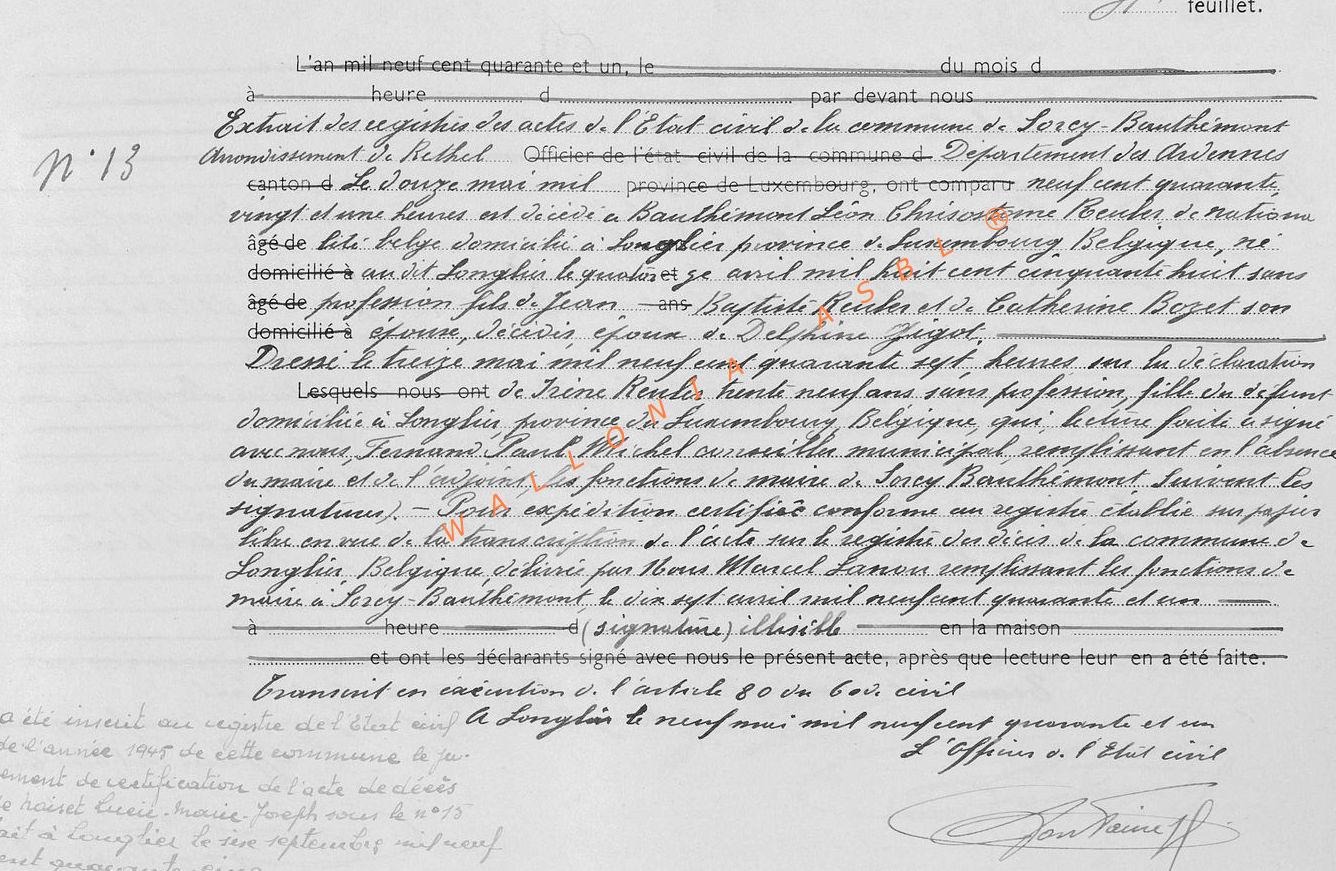 feuillet.
L'an mil neuf cent quarante et un, le du mois d
à heure d par devant nous
Extrait des registres des actes de l'Etat civil de la commune de Sorcy-Bauthémont
N° 13 Arrondissement de Rethel Officier de l'état civil de la commune d Département des Ardennes
canton d Le douze mai mil province de Luxembourg, ont comparu neuf cent quarante,
vingt et une heures est décédé à Bauthémont Léon Chrisostome Reuler de nationa
âgé de lité belge domicilié à Longlier province de Luxembourg Belgique, né
domicilié à au dit Longlier le quator et ze avril mil huit cent cinquante huit sans
âgé de profession fils de Jean ans Baptiste Reuler et de Catherine Bozet son
domicilié à épouse, décédés, époux de Delphine Gigot.
Dressé le treize mai mil neuf cent quarante sept heures, sur la déclaration
Lesquels nous ont de Irène Reuler trente neuf ans sans profession, fille du défunt
domiciliée à Longlier, province du Luxembourg, Belgique, qui, lecture faite a signé
avec nous, Fernand Paul Michel conseiller municipal remplissant en l'absence
du maire et de l'adjoint, les fonctions de maire de Sorcy Bauthémont Suivent les
signatures). - Pour expédition certifiée conforme au registre établie sur papier
libre en vue de la transcription de l'acte sur le registre des décès de la commune de
Longlier, Belgique, délivrée par Nous Marcel Lanou remplissant les fonctions de
maire à Sorcy-Bauthémont, le dix sept avril mil neuf cent quarante et un
à heure d (signature) illisible en la maison
et ont les déclarants signé avec nous le présent acte, après que lecture leur en a été faite.
Transcrit en exécution de l'article 80 du Code civil
A Longlier le neuf mai mil neuf cent quarante et un
L'Officier de l'Etat civil
a été inscrit au registre de l'Etat civil
de l'année 1945 de cette commune le ju-
ement de certification de l'acte de décès
de Lucie-Marie-Joseph sous le n° 15
ait à Longlier le septembre mil neuf
ent quarante cinq
WALLONIA ASBL ®